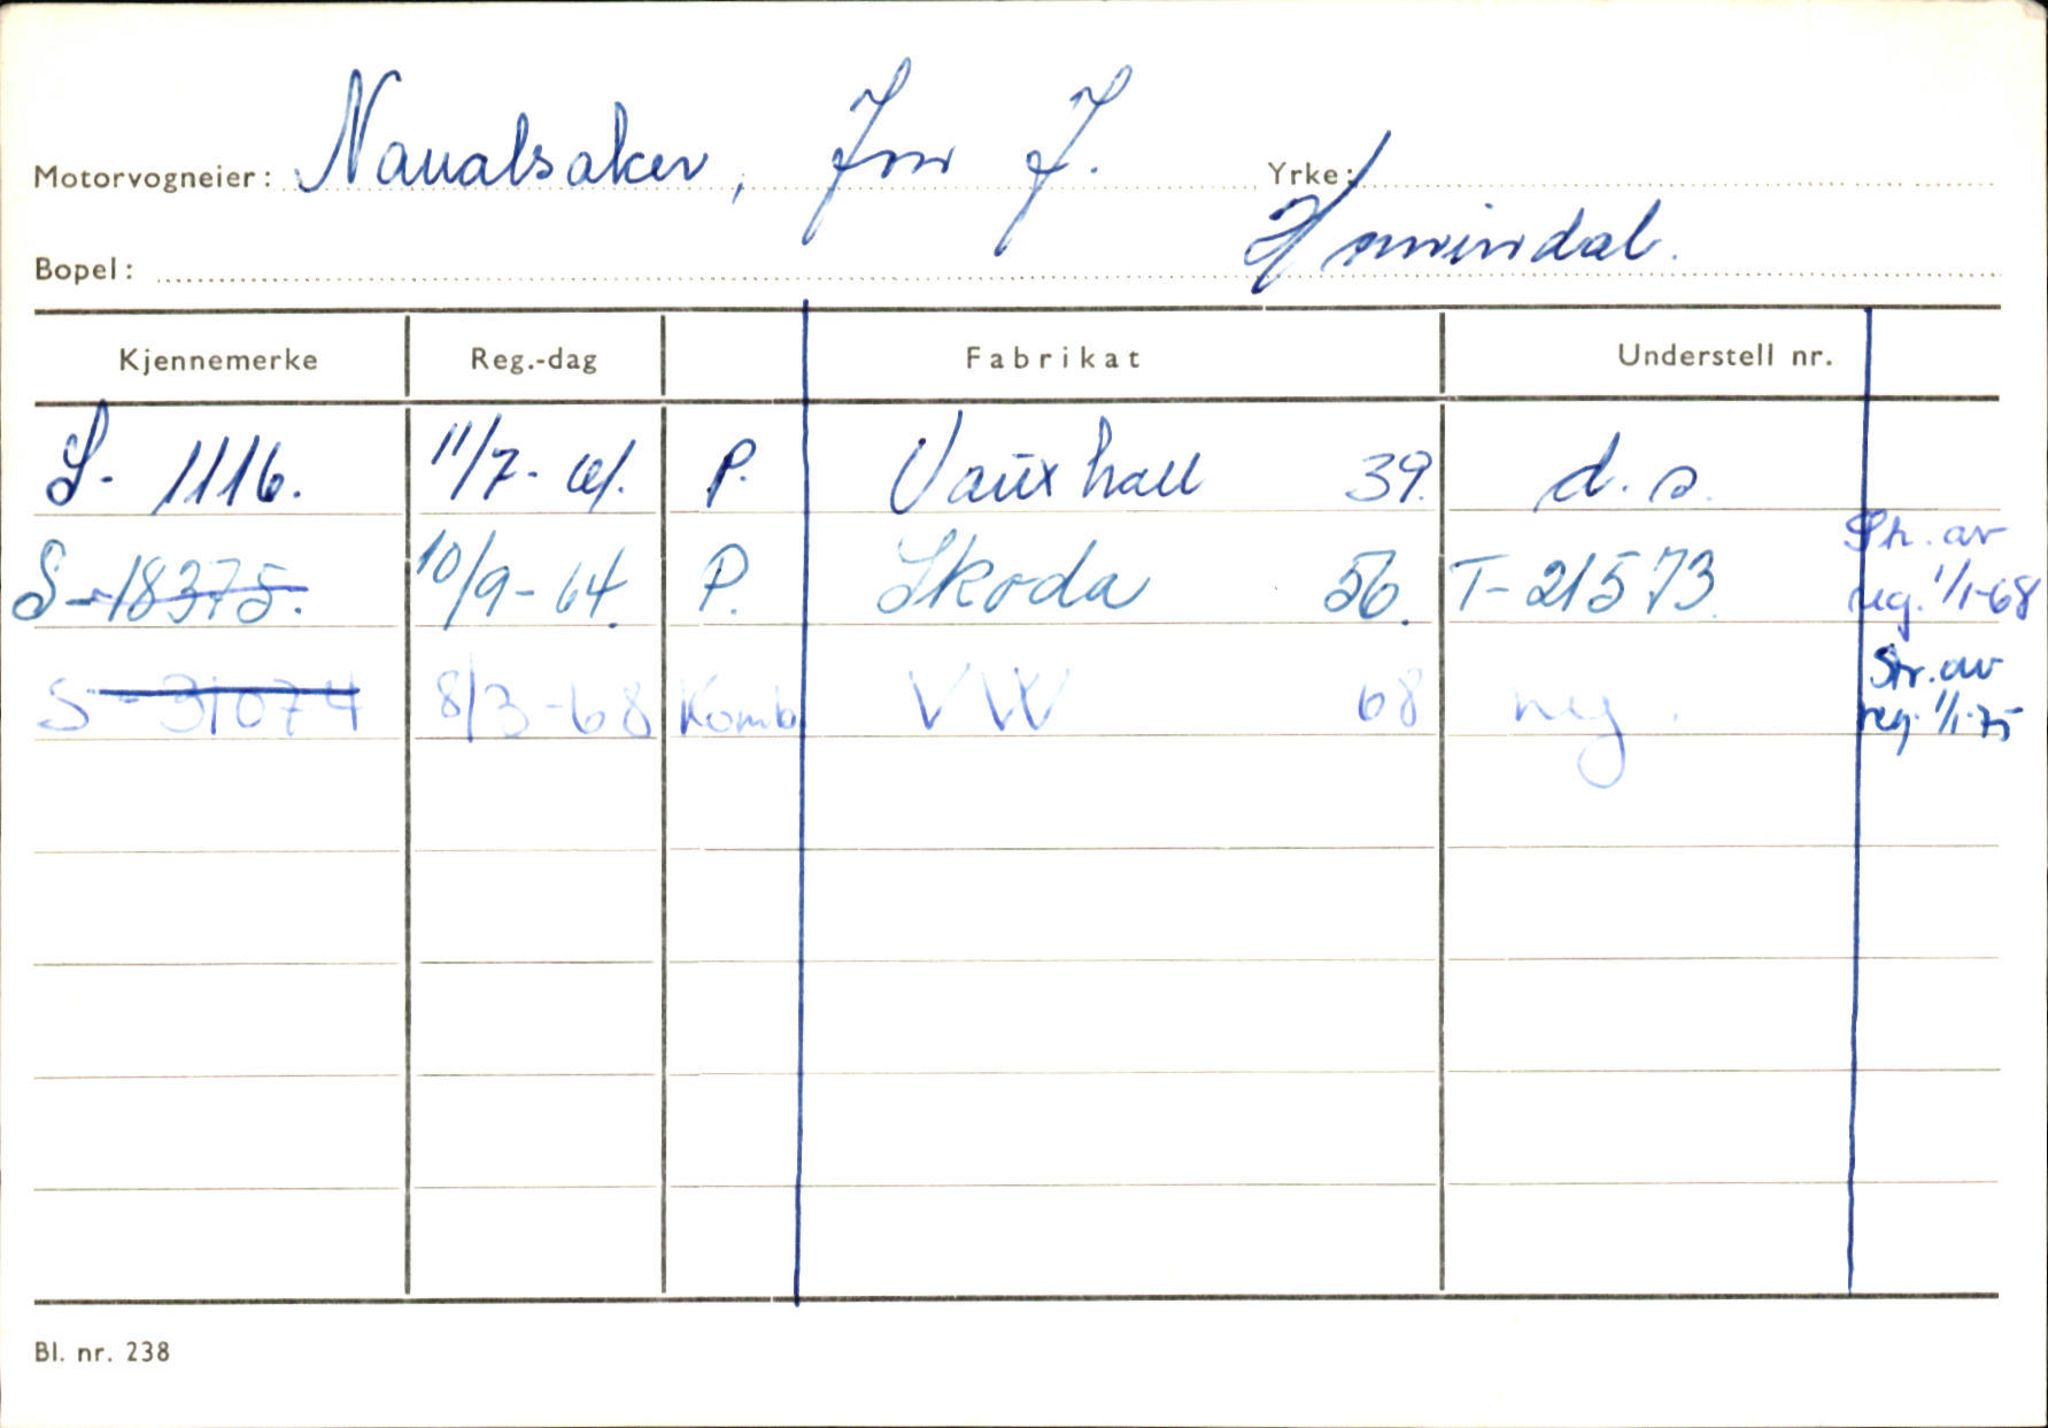 Motorvogneier: Naualsaker, Jon J. Yrke:
Bopel: Hornindal.
Kjennemerke Reg.-dag Fabrikat Understell nr.
S- 1116. 11/7-61. P. Vauxhall 39. d.s.
S-18375. 10/9-64. P. Skoda 56. T-21573. Str. av reg. 1/1-68
S-31074 8/3-68 Komb VW 68 ny. Str. av reg. 1/1-75
Bl. nr. 238